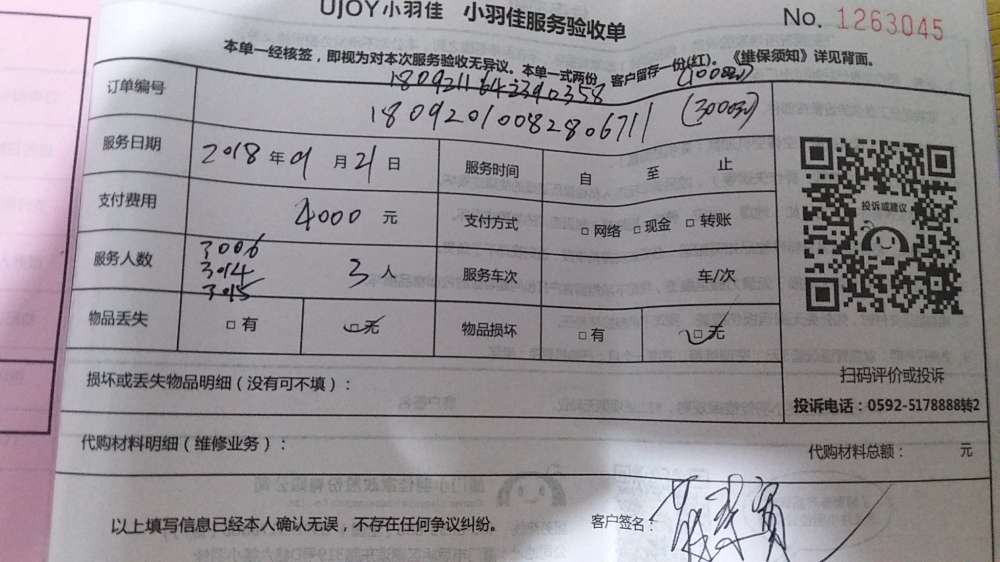 UJOY小羽佳 小羽佳服务验收单
No. 1263045
本单一经核签，即视为对本次服务验收无异议。本单一式两份，客户留存一份(红)。《维保须知》详见背面。
订单编号
1809211642390358 (1000元)
18092010082806711 (3000元)
服务日期 2018 年 9 月 21 日 服务时间 自 至 止
支付费用 4000 元 支付方式 □网络 □现金 □转账
服务人数 3006 3014 3015 3 人 服务车次 车/次
物品丢失 □有 □无 物品损坏 □有 □无
投诉或建议
扫码评价或投诉
投诉电话：0592-5178888转2
损坏或丢失物品明细（没有可不填）：
代购材料明细（维修业务）： 代购材料总额： 元
以上填写信息已经本人确认无误，不存在任何争议纠纷。 客户签名：